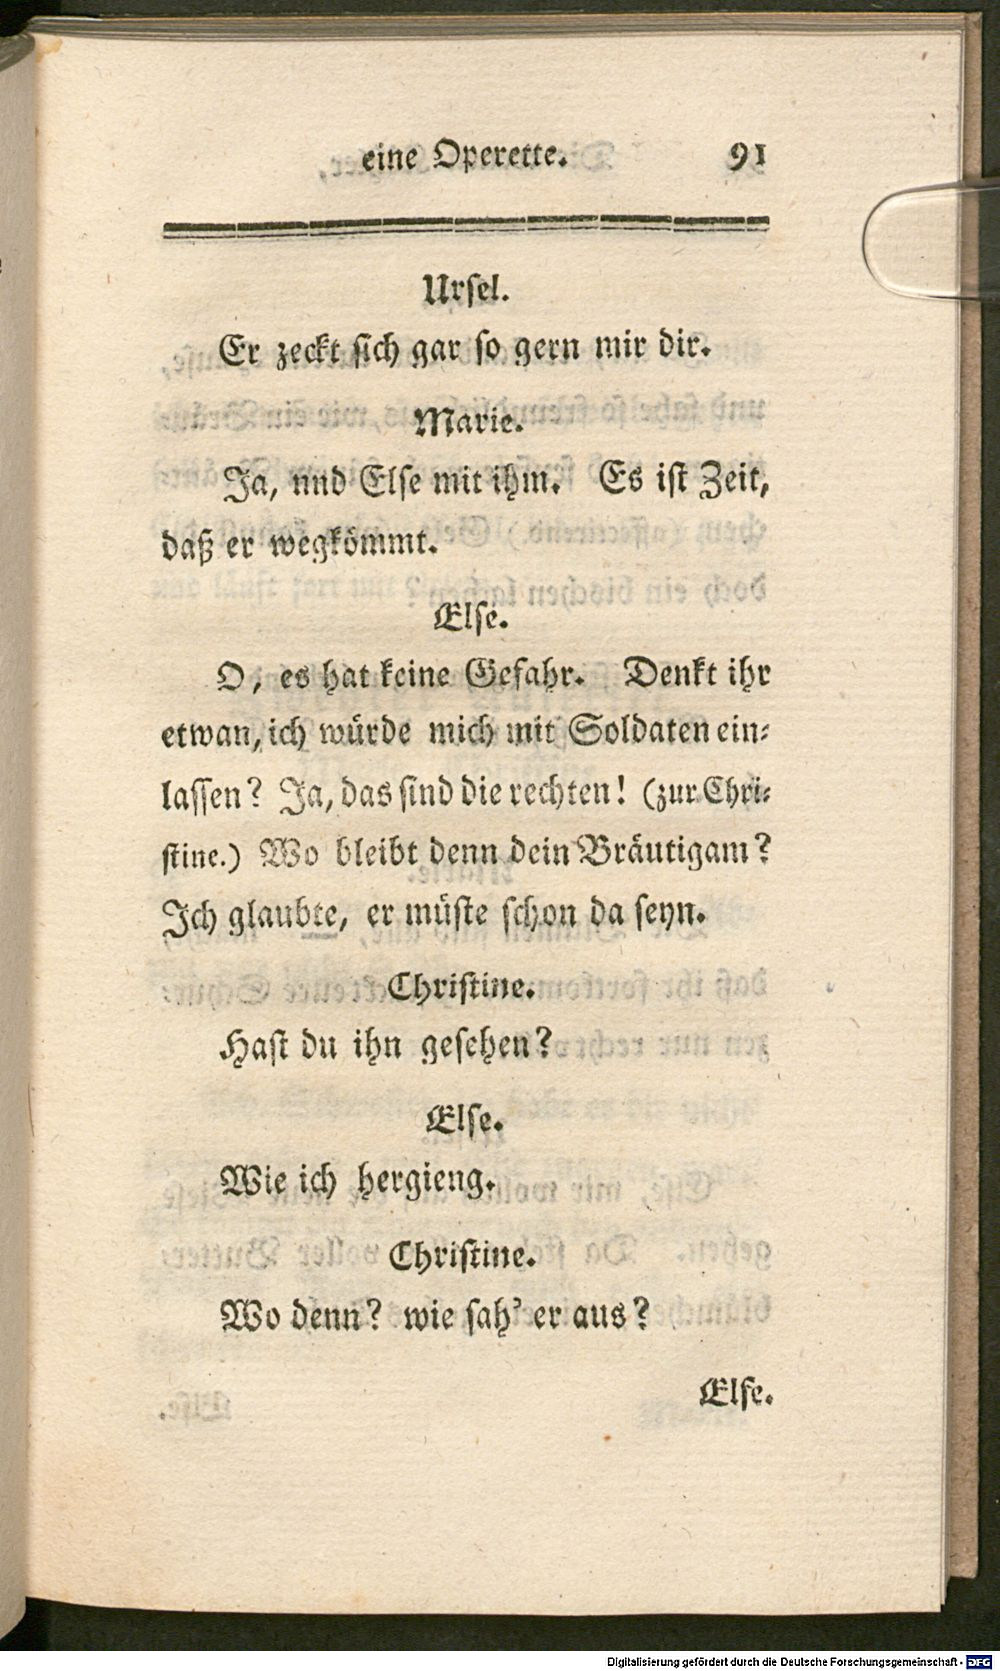 eine Operette. 91
Ursel.
Er zeckt sich gar so gern mir dir.
Marie.
Ja, nnd Else mit ihm. Es ist Zeit,
daß er wegkömmt.
Else.
O, es hat keine Gefahr. Denkt ihr
etwan, ich würde mich mit Soldaten ein-
lassen? Ja, das sind die rechten! (zur Chri-
stine.) Wo bleibt denn dein Bräutigam?
Ich glaubte, er müste schon da seyn.
Christine.
Hast du ihn gesehen?
Else.
Wie ich hergieng.
Christine.
Wo denn? wie sah' er aus?
Else.
Digitalisierung gefördert durch die Deutsche Forschungsgemeinschaft - DFG